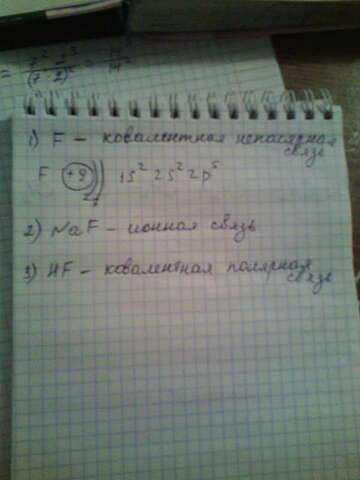 1) F – ковалентная неполярная
связь
F +9 1s² 2s² 2p⁵
2
2) NaF – ионная связь
3) HF – ковалентная полярная
связь